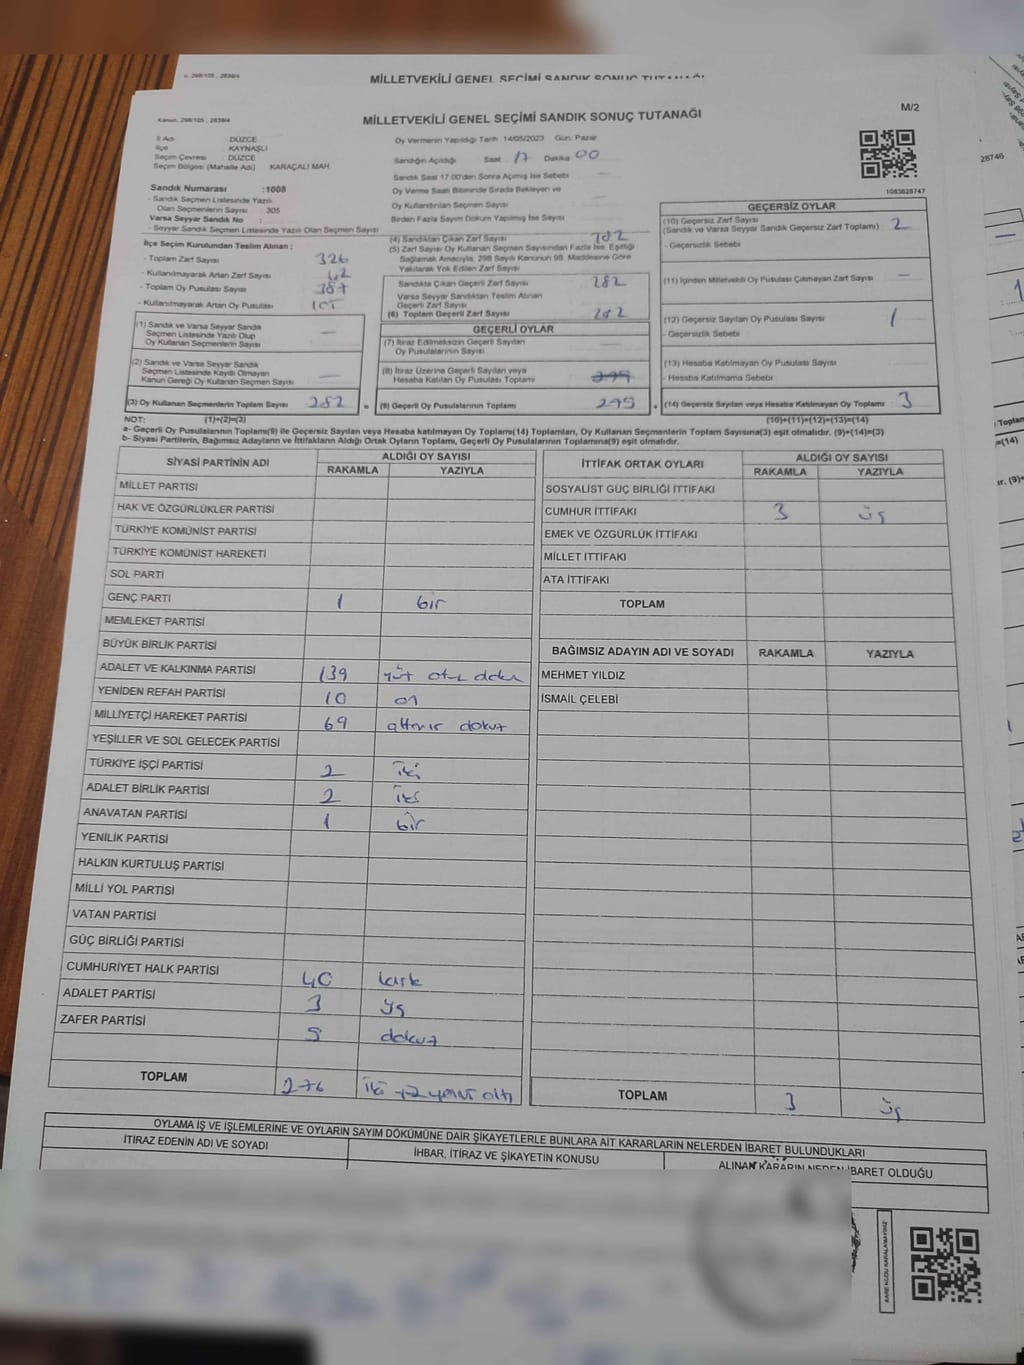 n. 298/105 , 2839/4
MİLLETVEKİLİ GENEL SEÇİMİ SANDIK SONUÇ TUTANAĞI
M/2
Kanun. 298/105 , 2839/4
MİLLETVEKİLİ GENEL SEÇİMİ SANDIK SONUÇ TUTANAĞI
İl Adı DÜZCE
İlçe KAYNAŞLI
Seçim Çevresi DÜZCE
Seçim Bölgesi (Mahalle Adı) KARAÇALI MAH.
Sandık Numarası :1008
- Sandık Seçmen Listesinde Yazılı
Olan Seçmenlerin Sayısı 305
Varsa Seyyar Sandık No :
- Seyyar Sandık Seçmen Listesinde Yazılı Olan Seçmen Sayısı
Oy Vermenin Yapıldığı Tarih 14/05/2023 Gün: Pazar
Sandığın Açıldığı Saat 17 Dakika 00
Sandık Saat 17.00'den Sonra Açılmış İse Sebebi
Oy Verme Saati Bitiminde Sırada Bekleyen ve
Oy Kullandırılan Seçmen Sayısı
Birden Fazla Sayım Döküm Yapılmış İse Sayısı
1083628747
28746
İlçe Seçim Kurulundan Teslim Alınan ;
- Toplam Zarf Sayısı 326
- Kullanılmayarak Artan Zarf Sayısı 42
- Toplam Oy Pusulası Sayısı 387
- Kullanılmayarak Artan Oy Pusulası 105
(1) Sandık ve Varsa Seyyar Sandık
Seçmen Listesinde Yazılı Olup
Oy Kullanan Seçmenlerin Sayısı —
(2) Sandık ve Varsa Seyyar Sandık
Seçmen Listesinde Kayıtlı Olmayan
Kanun Gereği Oy Kullanan Seçmen Sayısı —
(3) Oy Kullanan Seçmenlerin Toplam Sayısı 282 =
(4) Sandıktan Çıkan Zarf Sayısı 282
(5) Zarf Sayısı Oy Kullanan Seçmen Sayısından Fazla İse, Eşitliği
Sağlamak Amacıyla, 298 Sayılı Kanunun 98. Maddesine Göre
Yakılarak Yok Edilen Zarf Sayısı
Sandıkta Çıkan Geçerli Zarf Sayısı 282
Varsa Seyyar Sandıktan Teslim Alınan
Geçerli Zarf Sayısı
(6) Toplam Geçerli Zarf Sayısı 282
GEÇERLİ OYLAR
(7) İtiraz Edilmeksizin Geçerli Sayılan
Oy Pusulalarının Sayısı —
(8) İtiraz Üzerine Geçerli Sayılan veya
Hesaba Katılan Oy Pusulası Toplamı
(9) Geçerli Oy Pusulalarının Toplamı +
GEÇERSİZ OYLAR
(10) Geçersiz Zarf Sayısı
(Sandık ve Varsa Seyyar Sandık Geçersiz Zarf Toplamı) 2
- Geçersizlik Sebebi
(11) İçinden Milletvekili Oy Pusulası Çıkmayan Zarf Sayısı —
(12) Geçersiz Sayılan Oy Pusulası Sayısı 1
- Geçersizlik Sebebi
(13) Hesaba Katılmayan Oy Pusulası Sayısı
- Hesaba Katılmama Sebebi
(14) Geçersiz Sayılan veya Hesaba Katılmayan Oy Toplamı 3
NOT: (1)+(2)=(3) (10)+(11)+(12)+(13)=(14)
a- Geçerli Oy Pusulalarının Toplamı(9) ile Geçersiz Sayılan veya Hesaba katılmayan Oy Toplamı(14) Toplamları, Oy Kullanan Seçmenlerin Toplam Sayısına(3) eşit olmalıdır. (9)+(14)=(3)
b- Siyasi Partilerin, Bağımsız Adayların ve İttifakların Aldığı Ortak Oyların Toplamı, Geçerli Oy Pusulalarının Toplamına(9) eşit olmalıdır.
SİYASİ PARTİNİN ADI ALDIĞI OY SAYISI
RAKAMLA YAZIYLA
MİLLET PARTİSİ
HAK VE ÖZGÜRLÜKLER PARTİSİ
TÜRKİYE KOMÜNİST PARTİSİ
TÜRKİYE KOMÜNİST HAREKETİ
SOL PARTİ
GENÇ PARTİ 1 bir
MEMLEKET PARTİSİ
BÜYÜK BİRLİK PARTİSİ
ADALET VE KALKINMA PARTİSİ 139 yüz otuz dokuz
YENİDEN REFAH PARTİSİ 10 on
MİLLİYETÇİ HAREKET PARTİSİ 69 altmış dokuz
YEŞİLLER VE SOL GELECEK PARTİSİ
TÜRKİYE İŞÇİ PARTİSİ 2 iki
ADALET BİRLİK PARTİSİ 2 iki
ANAVATAN PARTİSİ 1 bir
YENİLİK PARTİSİ
HALKIN KURTULUŞ PARTİSİ
MİLLİ YOL PARTİSİ
VATAN PARTİSİ
GÜÇ BİRLİĞİ PARTİSİ
CUMHURİYET HALK PARTİSİ 40 kırk
ADALET PARTİSİ 3 üç
ZAFER PARTİSİ 9 dokuz
TOPLAM 276 iki yüz yetmiş altı
İTTİFAK ORTAK OYLARI ALDIĞI OY SAYISI
RAKAMLA YAZIYLA
SOSYALİST GÜÇ BİRLİĞİ İTTİFAKI
CUMHUR İTTİFAKI 3 üç
EMEK VE ÖZGÜRLÜK İTTİFAKI
MİLLET İTTİFAKI
ATA İTTİFAKI
TOPLAM
BAĞIMSIZ ADAYIN ADI VE SOYADI RAKAMLA YAZIYLA
MEHMET YILDIZ
İSMAİL ÇELEBİ
TOPLAM 3 üç
OYLAMA İŞ VE İŞLEMLERİNE VE OYLARIN SAYIM DÖKÜMÜNE DAİR ŞİKAYETLERLE BUNLARA AİT KARARLARIN NELERDEN İBARET BULUNDUKLARI
İTİRAZ EDENİN ADI VE SOYADI İHBAR, İTİRAZ VE ŞİKAYETİN KONUSU ALINAN KARARIN NEDEN İBARET OLDUĞU
KARE KODU KARALAMAYINIZ!